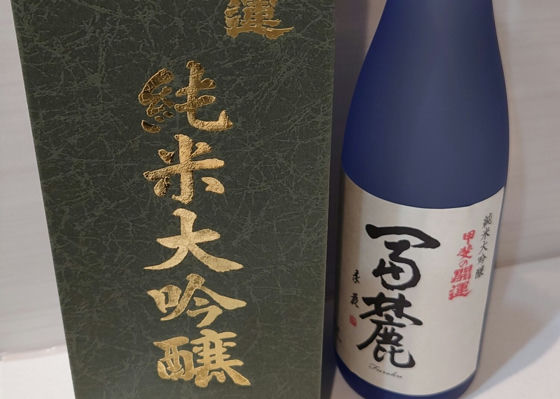 運
純米大吟醸
純米大吟醸
甲斐の開運
冨麓